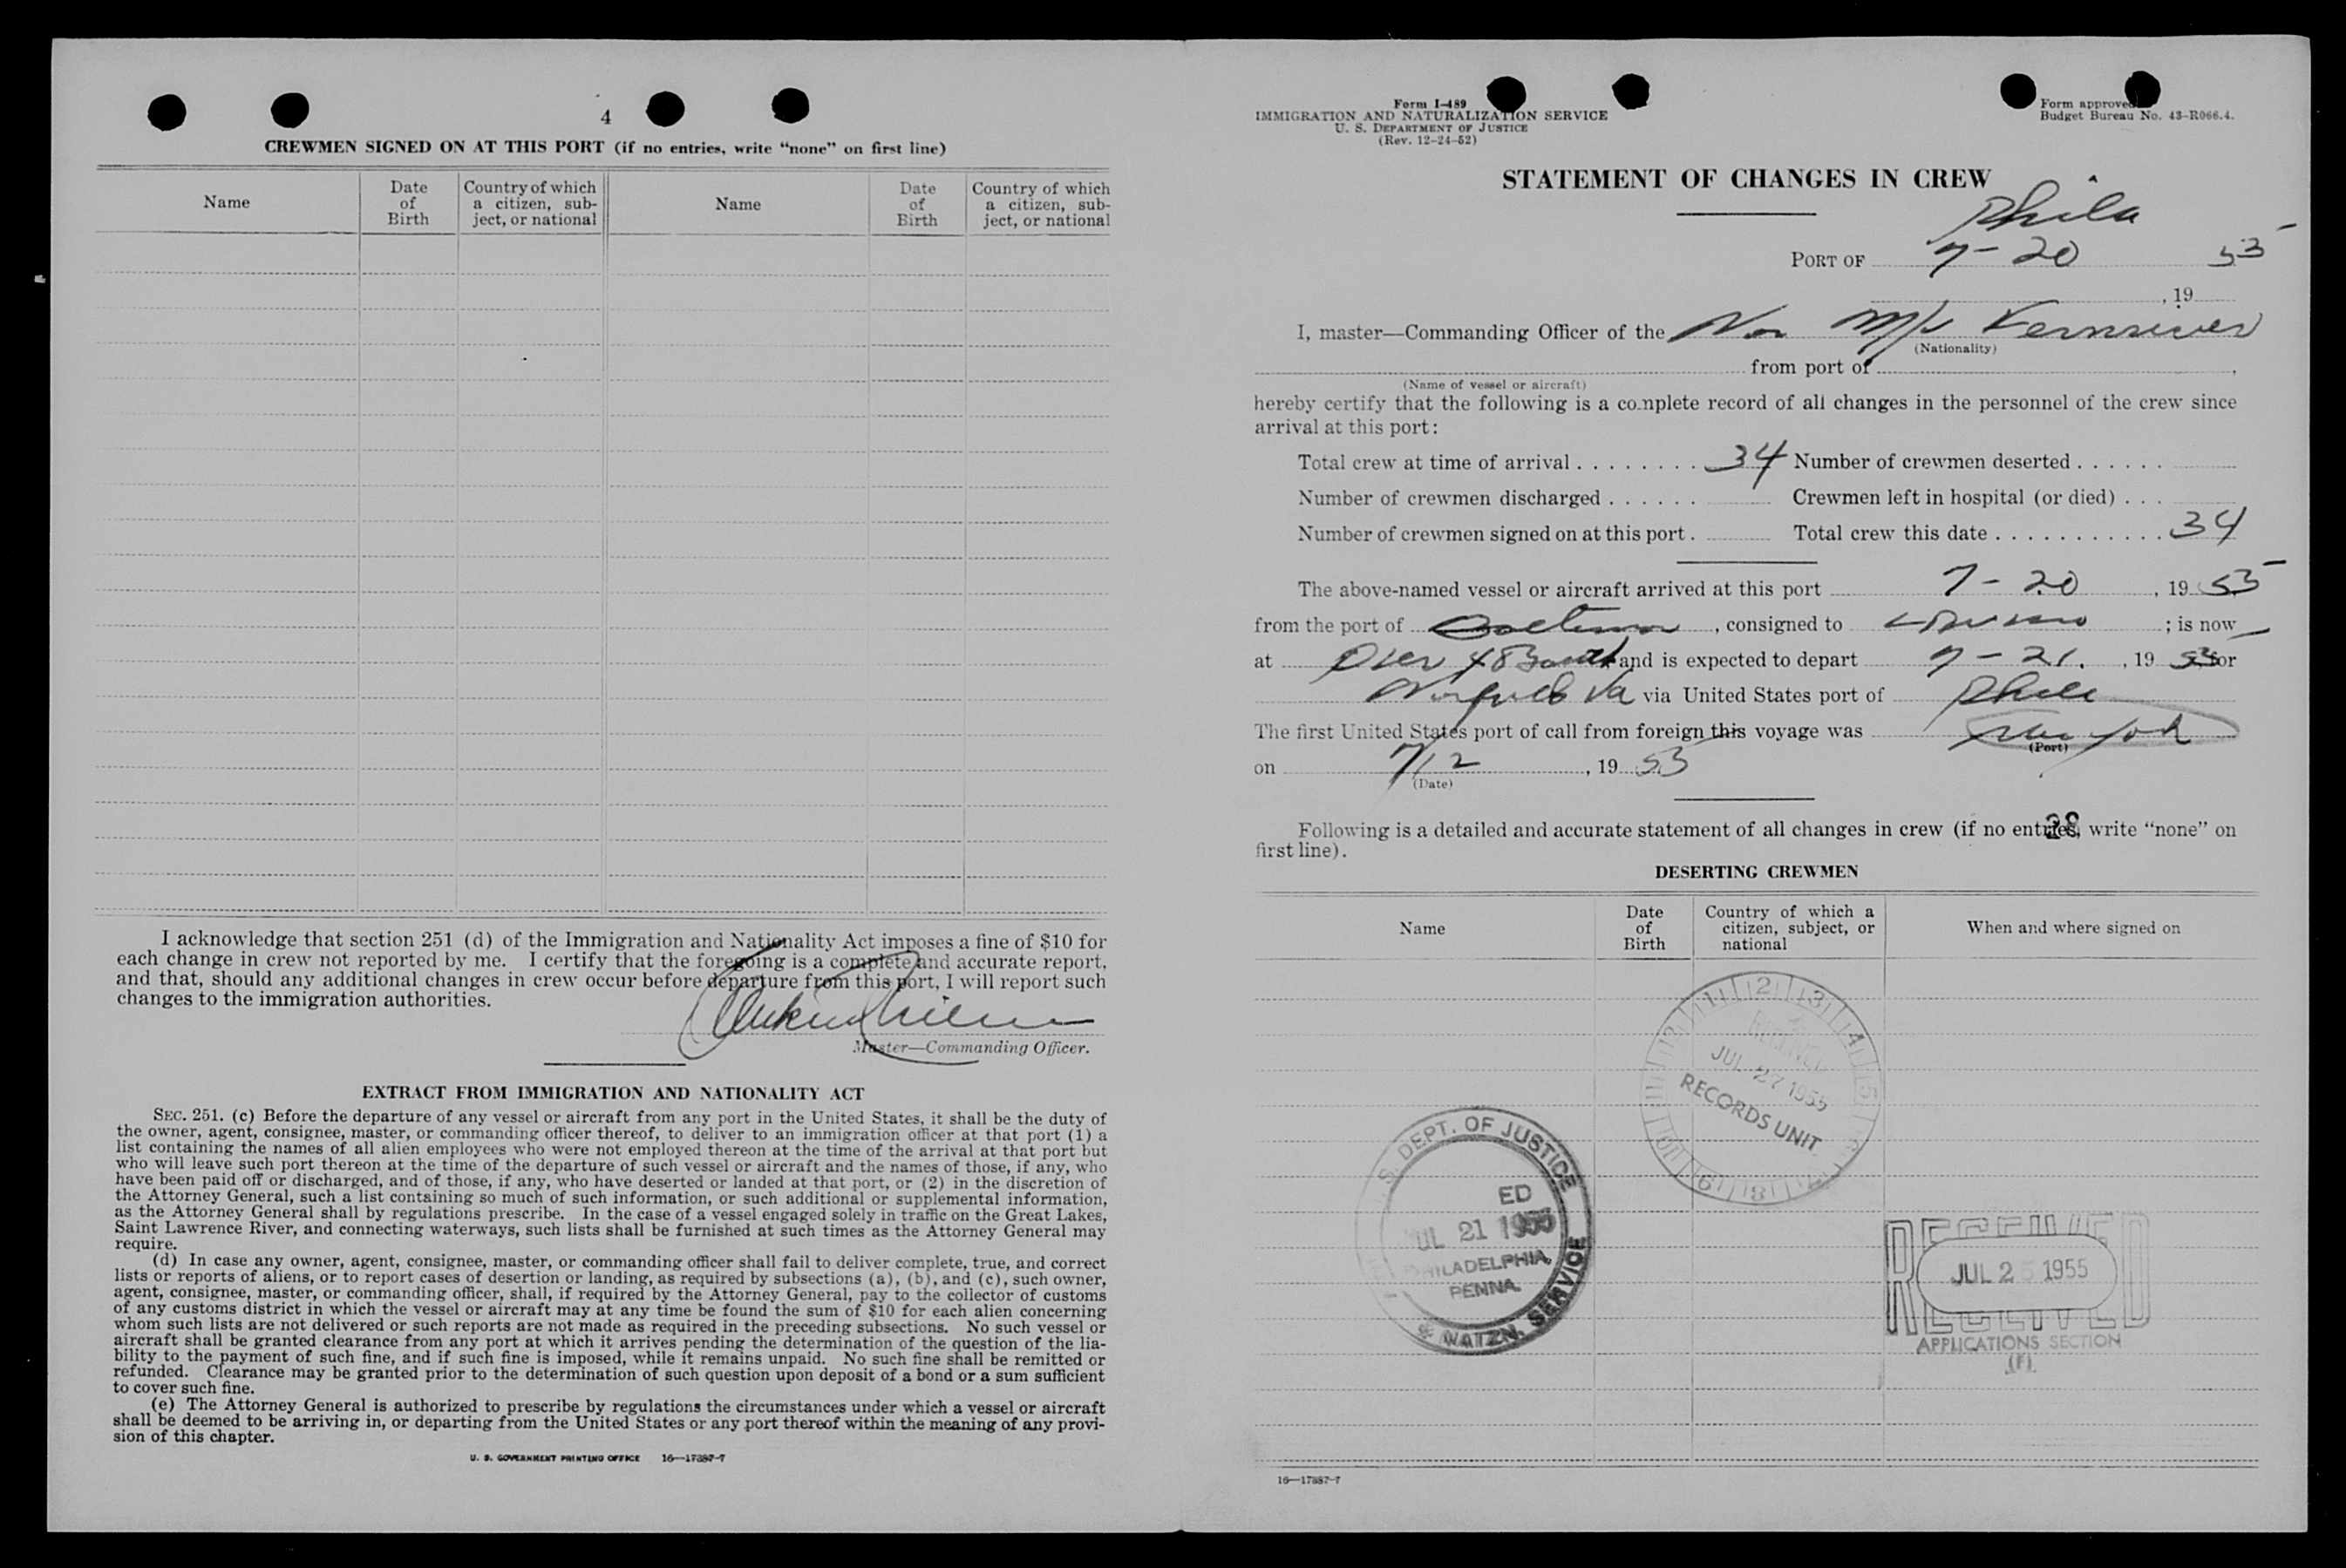 4
CREWMEN SIGNED ON AT THIS PORT (if no entries, write “none” on first line)
Name
Date of Birth
Country of which a citizen, subject, or national
Name
Date of Birth
Country of which a citizen, subject, or national
I acknowledge that section 251 (d) of the Immigration and Nationality Act imposes a fine of $10 for
each change in crew not reported by me. I certify that the foregoing is a complete and accurate report,
and that, should any additional changes in crew occur before departure from this port, I will report such
changes to the immigration authorities.
Master—Commanding Officer.
EXTRACT FROM IMMIGRATION AND NATIONALITY ACT
SEC. 251. (c) Before the departure of any vessel or aircraft from any port in the United States, it shall be the duty of
the owner, agent, consignee, master, or commanding officer thereof, to deliver to an immigration officer at that port (1) a
list containing the names of all alien employees who were not employed thereon at the time of the arrival at that port but
who will leave such port thereon at the time of the departure of such vessel or aircraft and the names of those, if any, who
have been paid off or discharged, and of those, if any, who have deserted or landed at that port, or (2) in the discretion of
the Attorney General, such a list containing so much of such information, or such additional or supplemental information,
as the Attorney General shall by regulations prescribe. In the case of a vessel engaged solely in traffic on the Great Lakes,
Saint Lawrence River, and connecting waterways, such lists shall be furnished at such times as the Attorney General may
require.
(d) In case any owner, agent, consignee, master, or commanding officer shall fail to deliver complete, true, and correct
lists or reports of aliens, or to report cases of desertion or landing, as required by subsections (a), (b), and (c), such owner,
agent, consignee, master, or commanding officer, shall, if required by the Attorney General, pay to the collector of customs
of any customs district in which the vessel or aircraft may at any time be found the sum of $10 for each alien concerning
whom such lists are not delivered or such reports are not made as required in the preceding subsections. No such vessel or
aircraft shall be granted clearance from any port at which it arrives pending the determination of the question of the lia-
bility to the payment of such fine, and if such fine is imposed, while it remains unpaid. No such fine shall be remitted or
refunded. Clearance may be granted prior to the determination of such question upon deposit of a bond or a sum sufficient
to cover such fine.
(e) The Attorney General is authorized to prescribe by regulations the circumstances under which a vessel or aircraft
shall be deemed to be arriving in, or departing from the United States or any port thereof within the meaning of any provi-
sion of this chapter.
U. S. GOVERNMENT PRINTING OFFICE 16—17887-7
Form I-489
IMMIGRATION AND NATURALIZATION SERVICE
U. S. DEPARTMENT OF JUSTICE
(Rev. 12-24-52)
Form approved
Budget Bureau No. 43-R066.4.
STATEMENT OF CHANGES IN CREW
Phila
PORT OF 7-20 55
, 19
I, master—Commanding Officer of the Nor M/S Fernriver
(Nationality)
from port of ,
(Name of vessel or aircraft)
hereby certify that the following is a complete record of all changes in the personnel of the crew since
arrival at this port:
Total crew at time of arrival 34 Number of crewmen deserted
Number of crewmen discharged Crewmen left in hospital (or died)
Number of crewmen signed on at this port. Total crew this date 34
The above-named vessel or aircraft arrived at this port 7-20, 19 55
from the port of , consigned to ; is now
at Pier 48 South and is expected to depart 7-21, 19 55 for
Norfolk Va via United States port of Phila
The first United States port of call from foreign this voyage was New York
(Port)
on 7/12, 19 55
(Date)
Following is a detailed and accurate statement of all changes in crew (if no entries, write “none” on
first line).
28
DESERTING CREWMEN
Name
Date of Birth
Country of which a citizen, subject, or national
When and where signed on
JUL 27 1955
RECORDS UNIT
S. DEPT. OF JUSTICE
ED
JUL 21 1955
PHILADELPHIA,
PENNA.
& NATZN. SERVICE
RECEIVED
JUL 25 1955
RECEIVED
APPLICATIONS SECTION
(F)
16—17887-7